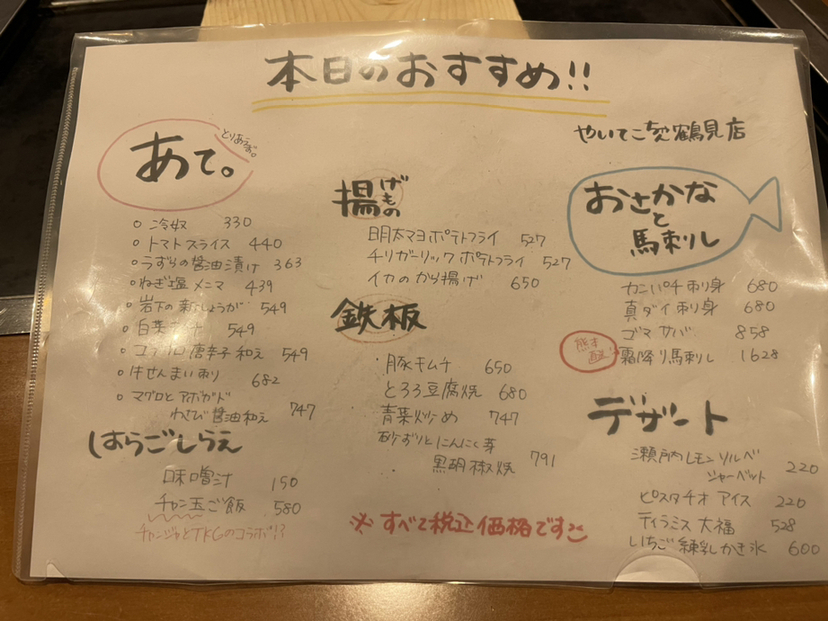 本日のおすすめ!!
やいてこ 鶴見店
とりあえず。
あて。
冷奴 330
トマトスライス 440
うずらの醤油漬け 363
ねぎ塩メンマ 439
岩下の新しょうが 549
白菜 549
唐辛子和え 549
牛せんまい刺し 682
マグロとアボガド
わさび醤油和え 747
はらごしらえ
味噌汁 150
チャン玉ご飯 580
チャンジャとTKGのコラボ!?
揚げもの
明太マヨポテトフライ 527
チリガーリックポテトフライ 527
イカのから揚げ 650
鉄板
・豚キムチ 650
とろろ豆腐焼 680
青菜炒め 747
砂ずりとにんにく芽
黒胡椒焼 791
※すべて税込価格です
おさかな
と
馬刺し
カンパチ刺身 680
真ダイ刺身 680
ゴマサバ 858
熊本
直送
霜降り馬刺し 1628
デザート
瀬戸内レモンソルベ
シャーベット 220
ピスタチオアイス 220
ティラミス大福 528
いちご練乳かき氷 600